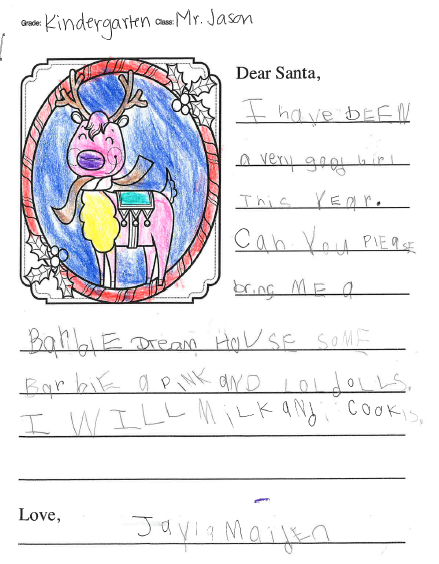 Grade: Kindergarten Class: Mr. Jason
Dear Santa,
I have bEEN
a very good girl
This YEar.
Can You PlEasE
bring ME a
BarbiE Dream HoUSE SomE
BarbiE a PINK aND LOLdOLLS.
I WILL MiLK and COOKIS.
Love,